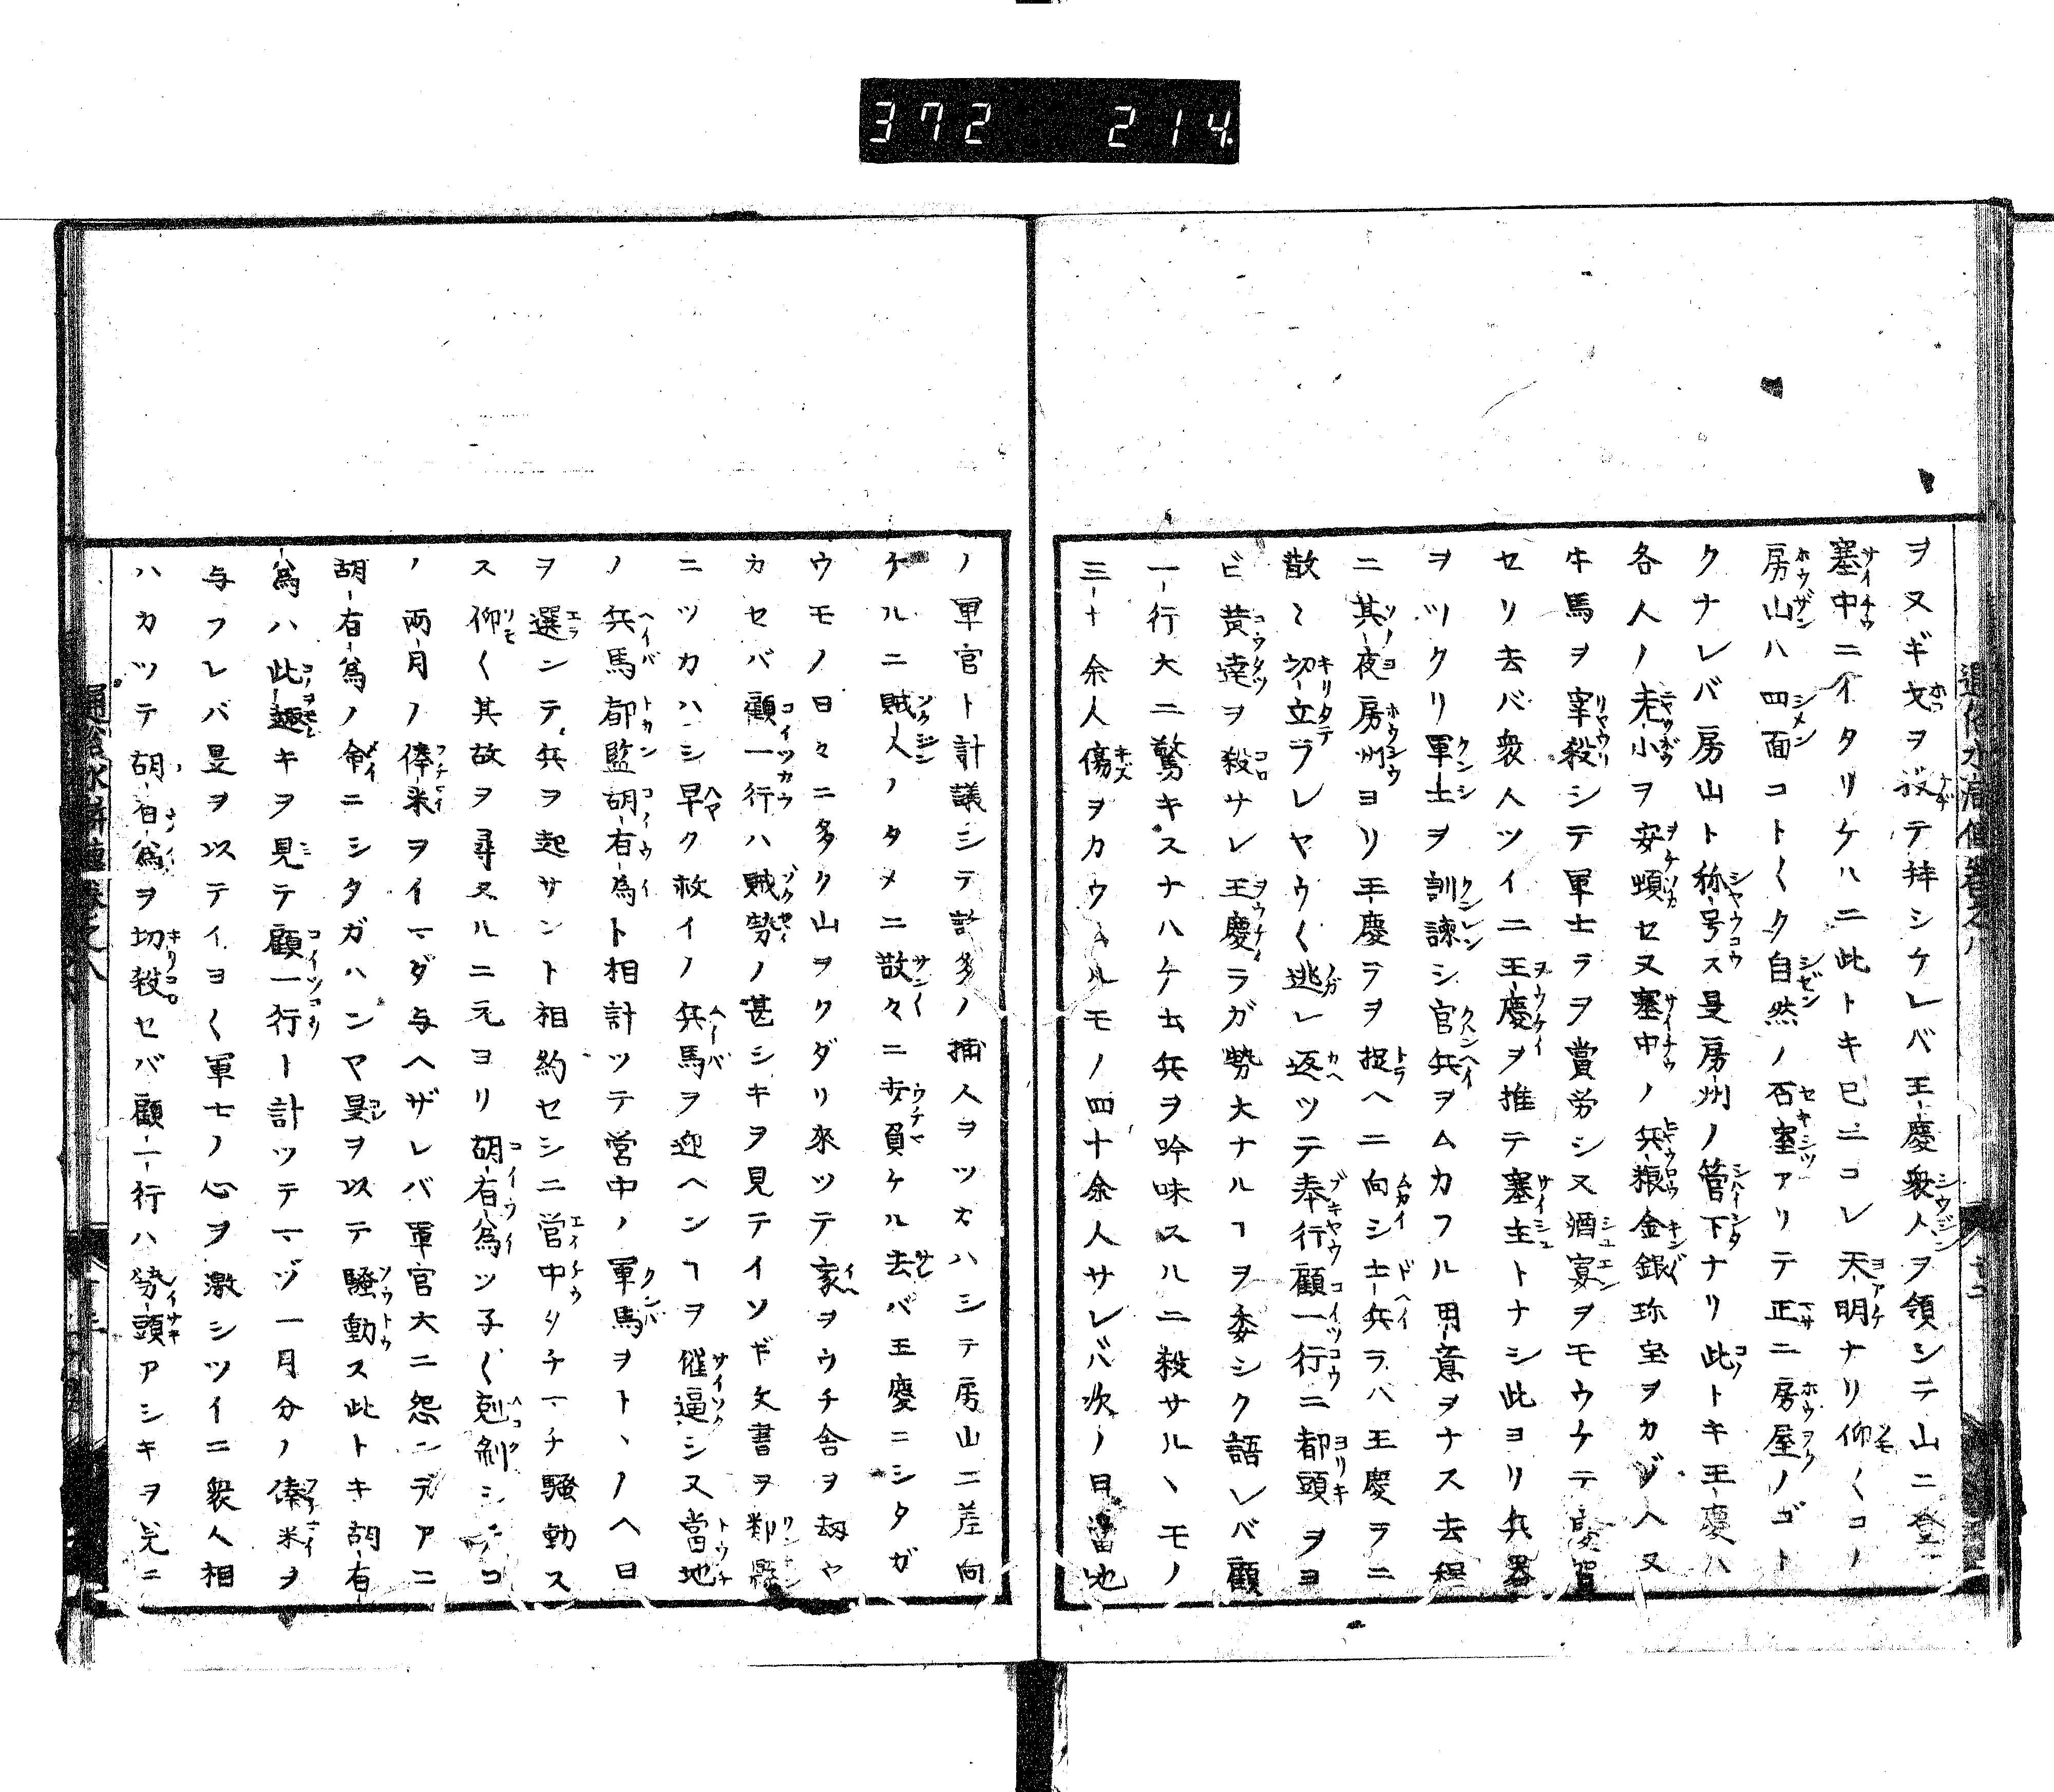 372 214
ヲヌギ戈ヲ抛テ拝シケレバ王慶衆人ヲ領シテ山ニ登
塞中ニイタリケハニ此トキ已ニコレ天明ナリ仰〱コノ
房山ハ四面コト〱ク自然ノ石室アリテ正ニ房屋ノゴト
クナレバ房山ト称号ス是房州ノ管下ナリ此トキ王慶ハ
各人ノ老小ヲ安頓セ又塞中ノ兵粮金銀珍宝ヲカゾヘ又
牛馬ヲ宰殺シテ軍士ラヲ賞労シ又酒宴ヲモウケテ慶賀
セリ去バ衆人ツイニ王慶ヲ推テ塞主トナシ此ヨリ兵器
ヲツクリ軍士ヲ訓諫シ官兵ヲムカフル用意ヲナス去程
ニ其夜房州ヨリ王慶ラヲ捉ヘニ向シ土兵ラハ王慶ラニ
散〻切立ラレヤウ〱逃レ返ツテ奉行顧一行ニ都頭ヲヨ
ビ黄達ヲ殺サレ王慶ラガ勢大ナルヿヲ委シク語レバ顧
一行大ニ驚キスナハケ土兵ヲ吟味スルニ殺サルヽモノ
三十余人傷ヲカウムルモノ四十余人サレバ次ノ日當地
ノ軍官ト計議シテ許多ノ捕人ヲツカハシテ房山ニ差向
ケルニ賊人ノタメニ散々ニ打負ケル去バ王慶ニシタガ
ウモノ日々ニ多ク山ヲクダリ來ツテ家ヲウチ舎ヲ劫ヤ
カセバ顧一行ハ賊勢ノ甚シキヲ見テイソギ文書ヲ鄰縣
ニツカハシ早ク救イノ兵馬ヲ迎ヘンヿヲ催逼シ又當地
ノ兵馬都監胡有為ト相計ツテ営中ノ軍馬ヲトヽノヘ日
ヲ選ンテ兵ヲ起サント相約セシニ営中リチマチ騒動ス
ス仰〱其故ヲ尋ヌルニ元ヨリ胡有為ツ子〱剋剝シテコ
ノ両月ノ俸米ヲイマダ与ヘザレバ軍官大ニ怨ンデアニ
胡有為ノ命ニシタガハンヤ是ヲ以テ騒動ス此トキ胡有
為ハ此趣キヲ見テ顧一行ト計ツテマヅ一月分ノ俸米ヲ
与フレバ是ヲ以テイヨ〱軍士ノ心ヲ激シツイニ衆人相
ハカツテ胡有為ヲ切殺セバ顧一行ハ勢頭アシキヲ見ニ